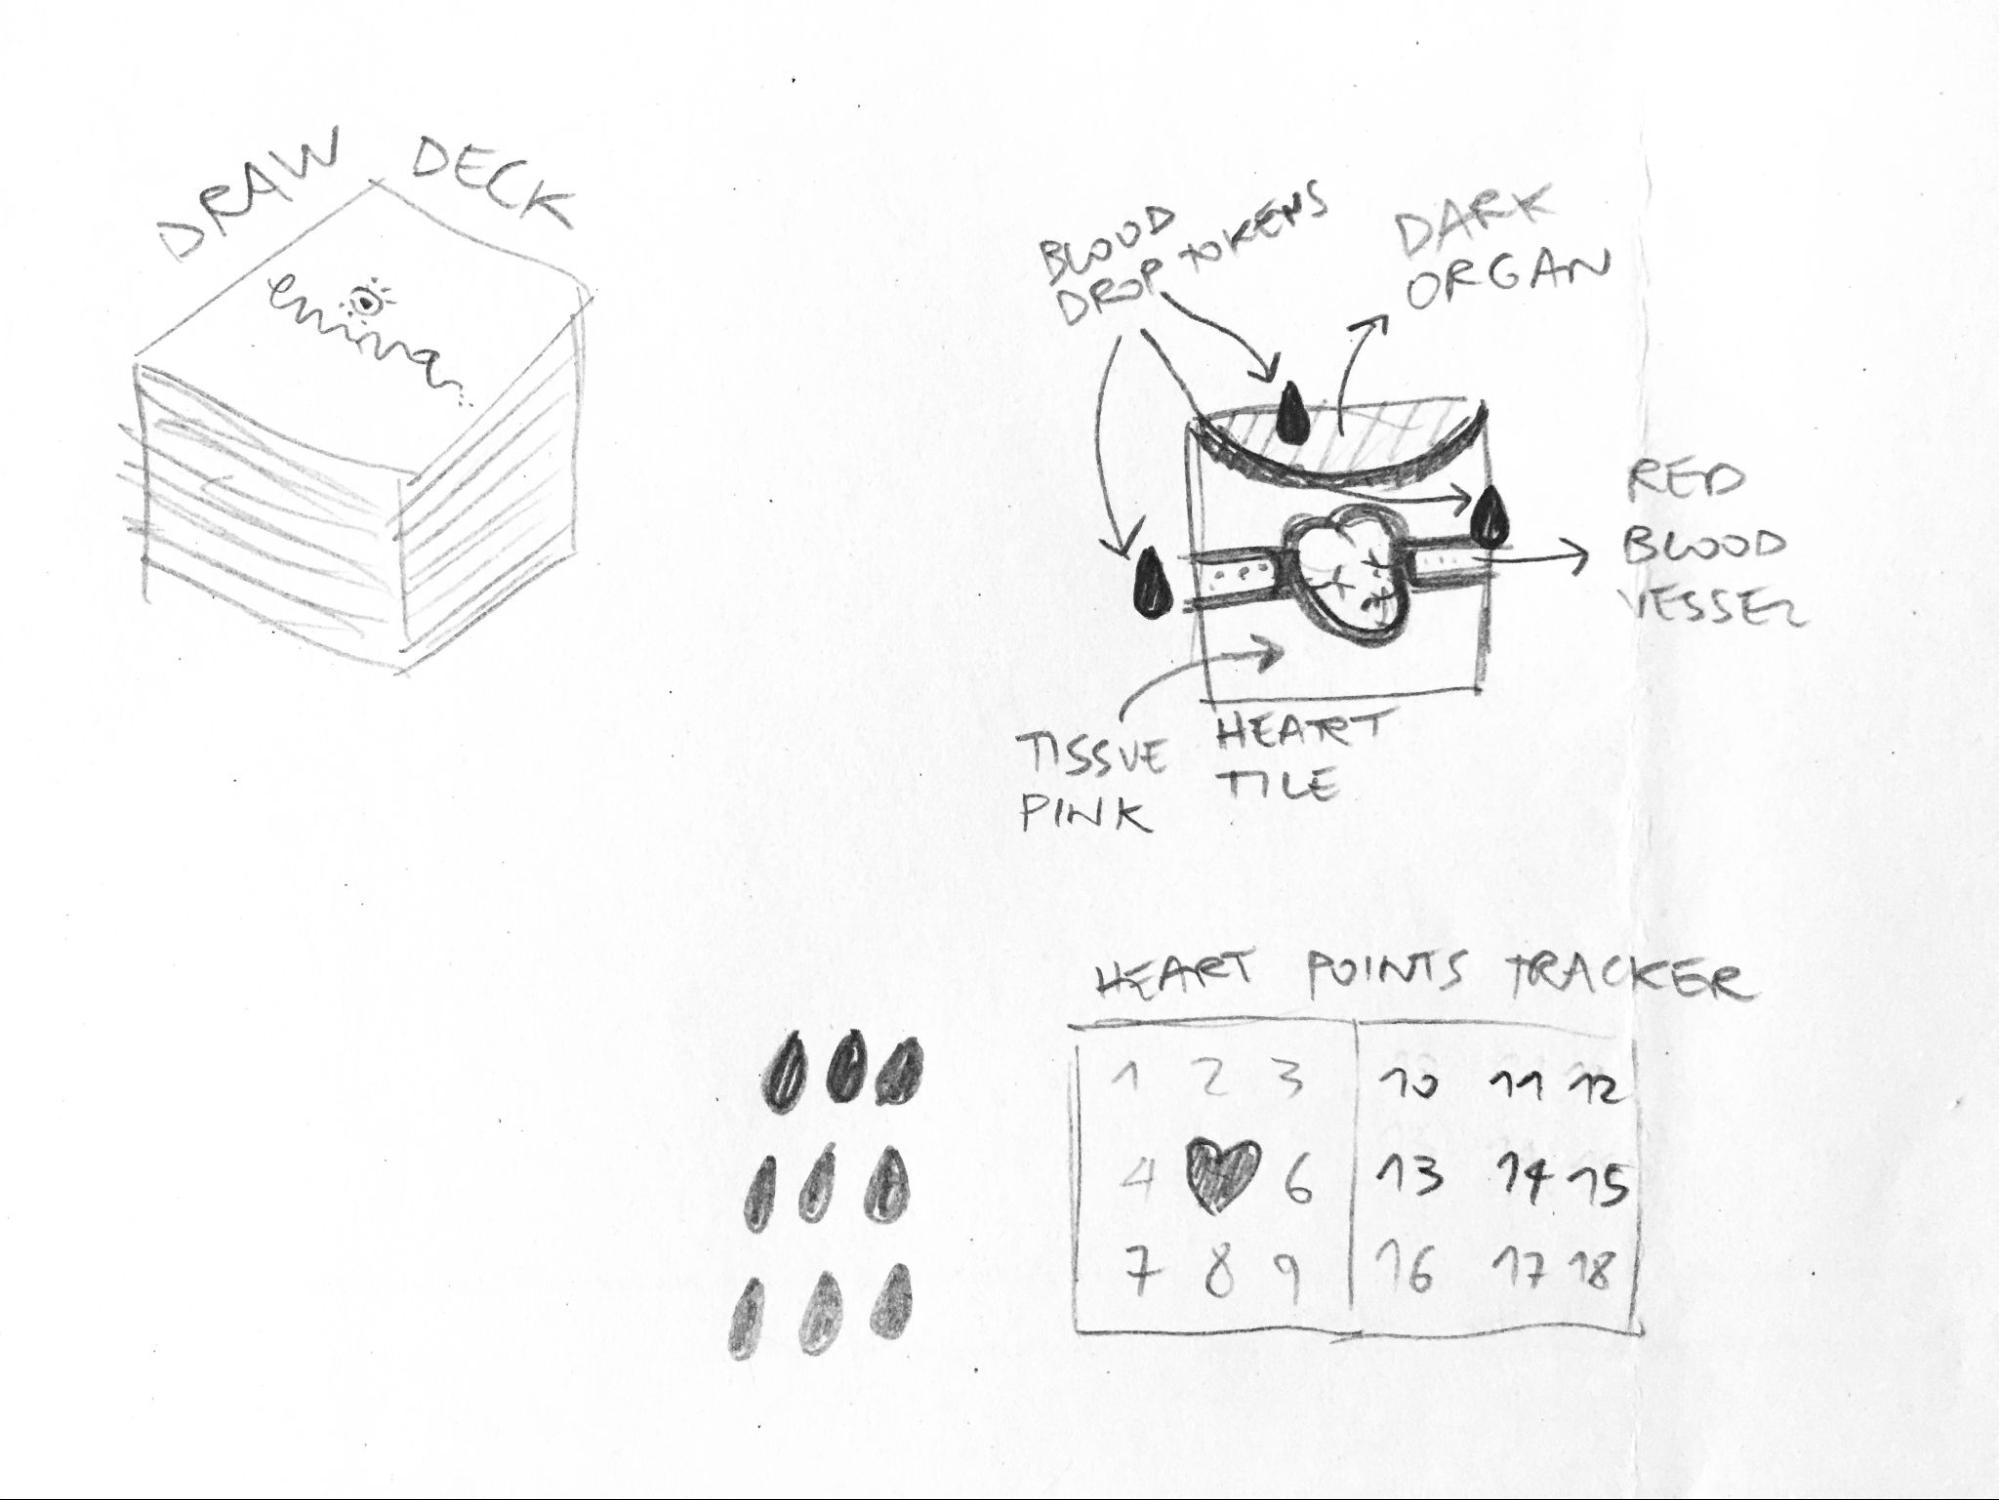 DRAW DECK
enima
BLOOD
DROP TOKENS
DARK
ORGAN
RED
BLOOD
VESSEL
TISSUE
PINK
HEART
TILE
HEART POINTS TRACKER
1 2 3 10 11 12
4 6 13 14 15
7 8 9 16 17 18